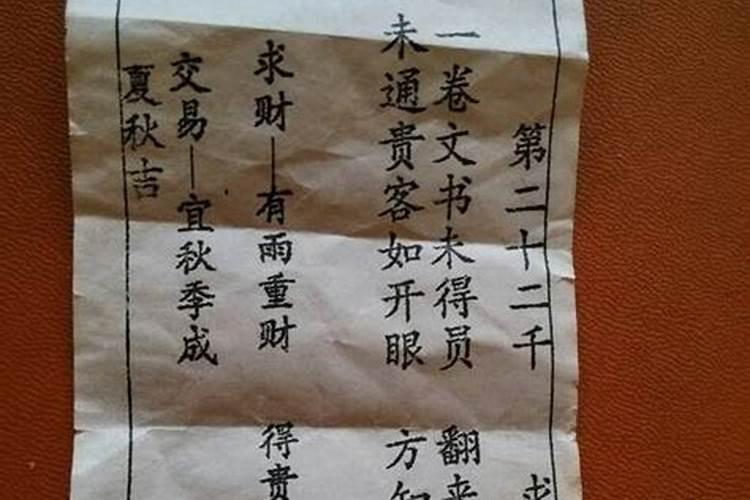 第二十二千 求
一卷文书未得员 翻来
未通贵客如开眼 方知
求财—有雨重财 得贵
交易—宜秋季成
夏秋吉